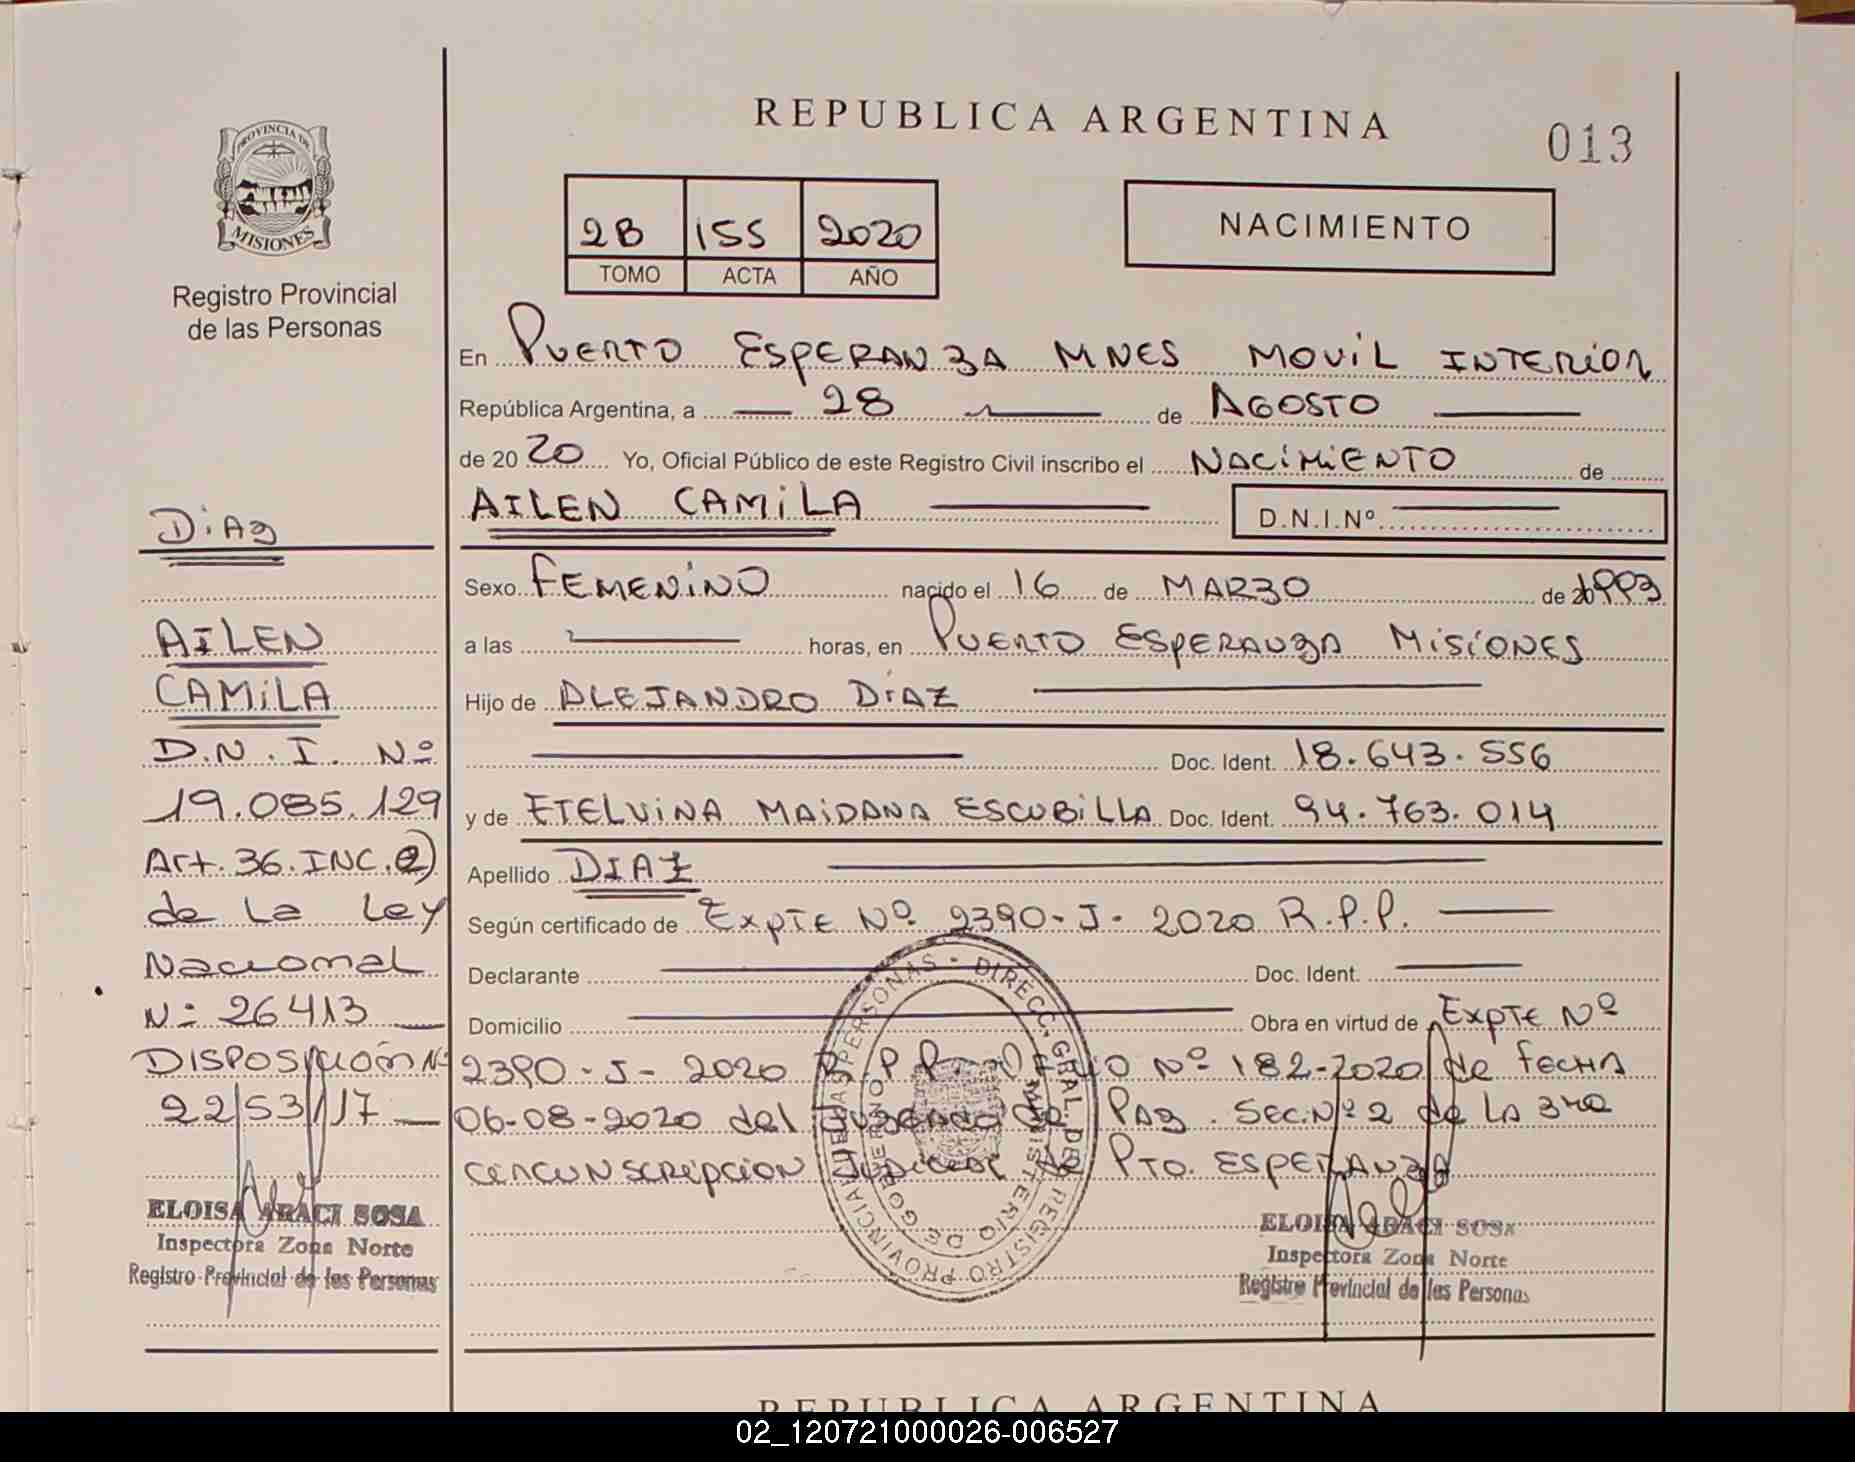 REPUBLICA ARGENTINA
013
PROVINCIA DE
MISIONES
Registro Provincial
de las Personas
2B 155 2020
TOMO ACTA AÑO
NACIMIENTO
En PUERTO ESPERANZA MNES MOVIL INTERIOR
República Argentina, a 28 de AGOSTO
de 20 20 Yo, Oficial Público de este Registro Civil inscribo el NACIMIENTO de
AILEN CAMILA D.N.I.Nº
Sexo FEMENINO nacido el 16 de MARZO de 1993
a las horas, en PUERTO ESPERANZA MISIONES
Hijo de ALEJANDRO DIAZ
Doc. Ident. 18.643.556
y de ETELVINA MAIDANA ESCOBILLA Doc. Ident. 94.763.014
Apellido DIAZ
Según certificado de EXPTE Nº 2390-J-2020 R.P.P.
Declarante Doc. Ident.
Domicilio Obra en virtud de EXPTE Nº
2390-J-2020 R.P.P. Oficio Nº 182-2020 de FECHA
06-08-2020 del Juzgado de PAZ. SEC.Nº2 de LA 3RA
CIRCUNSCRIPCION JUDICIAL de PTO. ESPERANZA
DIAZ
AILEN
CAMILA
D.N.I. Nº
19.085.129
Art. 36. INC. e)
de la Ley
Nacional
Nº 26413
DISPOSICIÓN Nº
22/53/17
ELOISA ARACI SOSA
Inspectora Zona Norte
Registro Provincial de las Personas
DIRECC. GRAL. DE REGISTRO PROVINCIAL DE LAS PERSONAS
MINISTERIO DE GOBIERNO
ELOISA ARACI SOSA
Inspectora Zona Norte
Registro Provincial de las Personas
REPUBLICA ARGENTINA
02_120721000026-006527